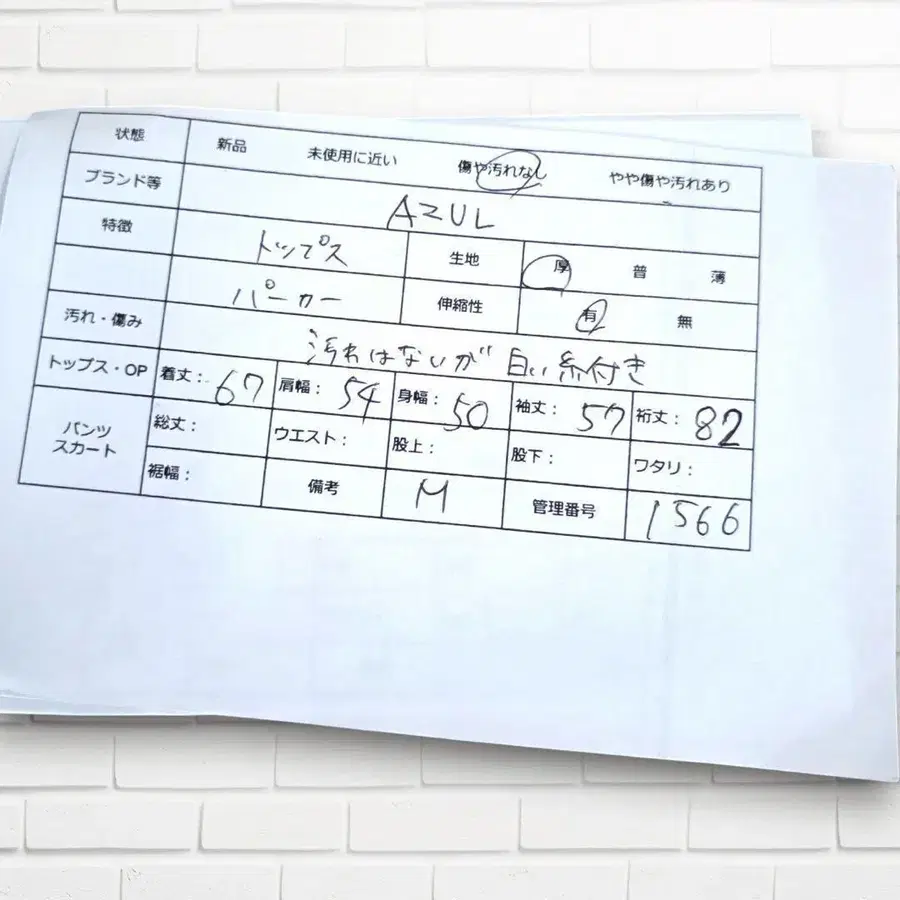 状態 新品 未使用に近い 傷や汚れなし やや傷や汚れあり
ブランド等 AZUL
特徴 トップス 生地 厚 普 薄
パーカー 伸縮性 有 無
汚れ・傷み 汚れはないが 白い糸付き
トップス・OP 着丈: 67 肩幅: 54 身幅: 50 袖丈: 57 裄丈: 82
パンツ スカート 総丈: ウエスト: 股上: 股下: ワタリ:
裾幅: 備考 M 管理番号 1566